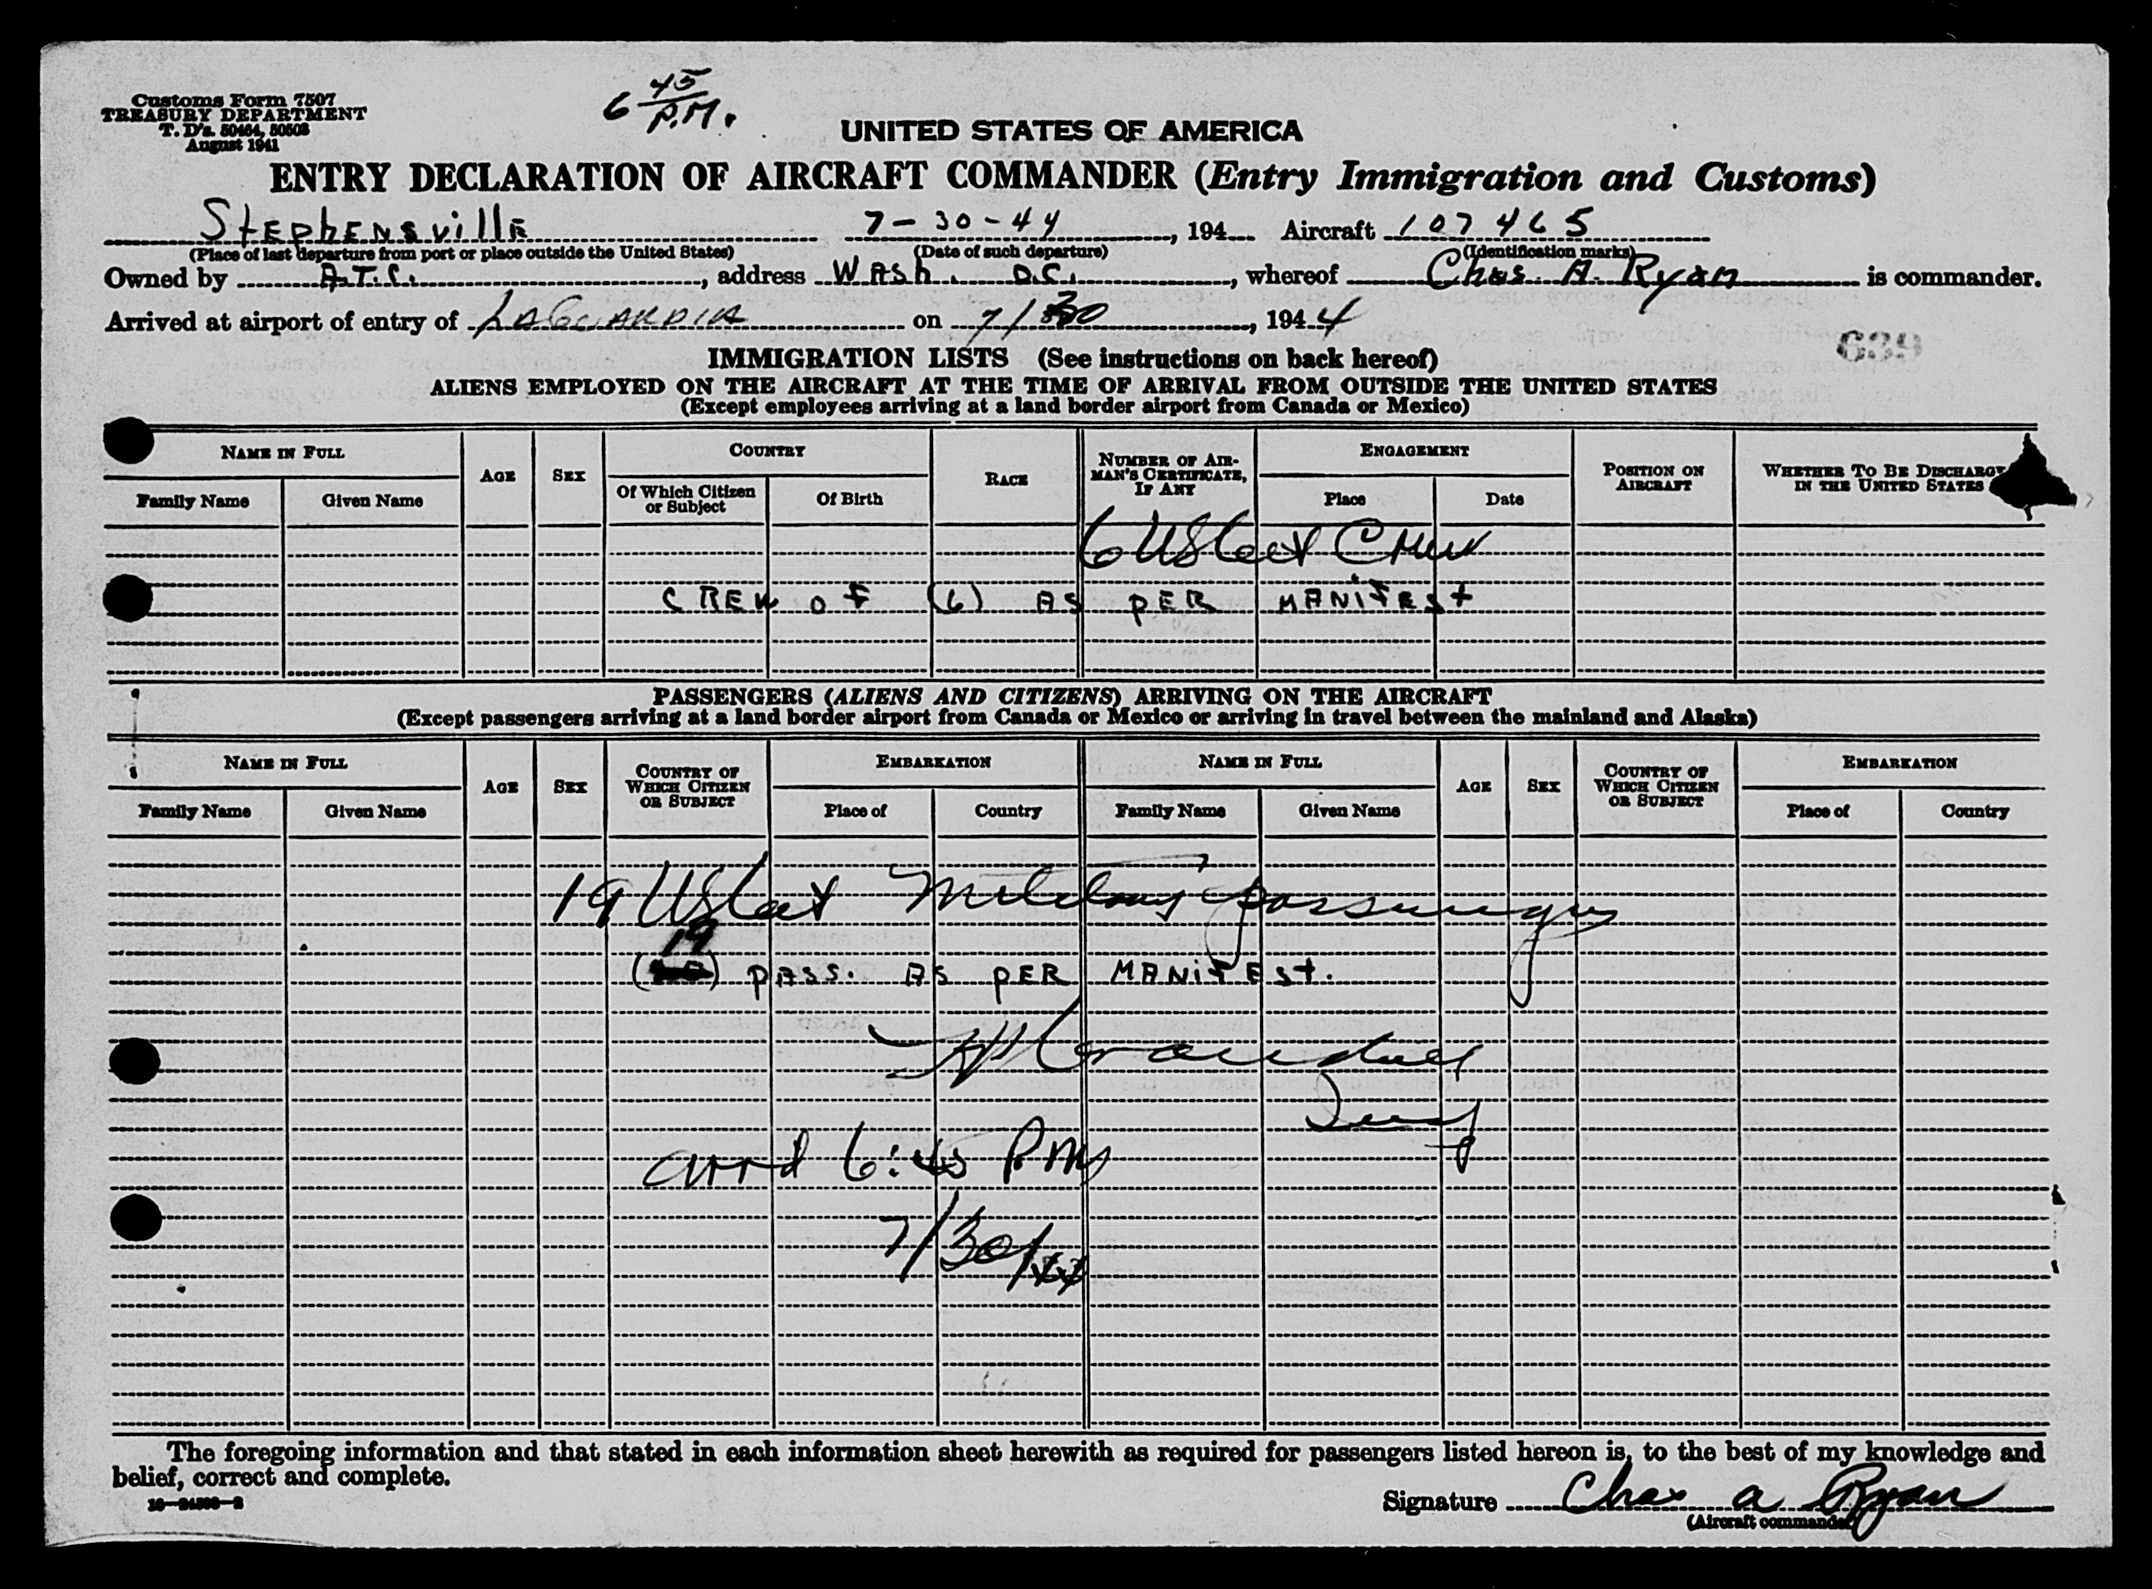 Customs Form 7507
TREASURY DEPARTMENT
T. D's. 50464, 50503
August 1941
6 45/P.M.
UNITED STATES OF AMERICA
ENTRY DECLARATION OF AIRCRAFT COMMANDER (Entry Immigration and Customs)
Stephensville 7-30-44, 194 Aircraft 107465
(Place of last departure from port or place outside the United States) (Date of such departure) (Identification marks)
Owned by A.T.C., address Wash. D.C., whereof Chas. A. Ryan is commander.
Arrived at airport of entry of LAGUARDIA on 7/30, 1944
639
IMMIGRATION LISTS (See instructions on back hereof)
ALIENS EMPLOYED ON THE AIRCRAFT AT THE TIME OF ARRIVAL FROM OUTSIDE THE UNITED STATES
(Except employees arriving at a land border airport from Canada or Mexico)
NAME IN FULL AGE SEX COUNTRY RACE NUMBER OF AIRMAN'S CERTIFICATE, IF ANY ENGAGEMENT POSITION ON AIRCRAFT WHETHER TO BE DISCHARGE IN THE UNITED STATES
Family Name Given Name Of Which Citizen or Subject Of Birth Place Date
6 US Cit Crew
CREW OF (6) AS PER MANIFEST
PASSENGERS (ALIENS AND CITIZENS) ARRIVING ON THE AIRCRAFT
(Except passengers arriving at a land border airport from Canada or Mexico or arriving in travel between the mainland and Alaska)
NAME IN FULL AGE SEX COUNTRY OF WHICH CITIZEN OR SUBJECT EMBARKATION NAME IN FULL AGE SEX COUNTRY OF WHICH CITIZEN OR SUBJECT EMBARKATION
Family Name Given Name Place of Country Family Name Given Name Place of Country
19 US Cit Military passengers
19
PASS. AS PER MANIFEST.
arrd 6:45 P.M.
7/30/44
The foregoing information and that stated in each information sheet herewith as required for passengers listed hereon is, to the best of my knowledge and
belief, correct and complete.
Signature Chas A Ryan
(Aircraft commander)